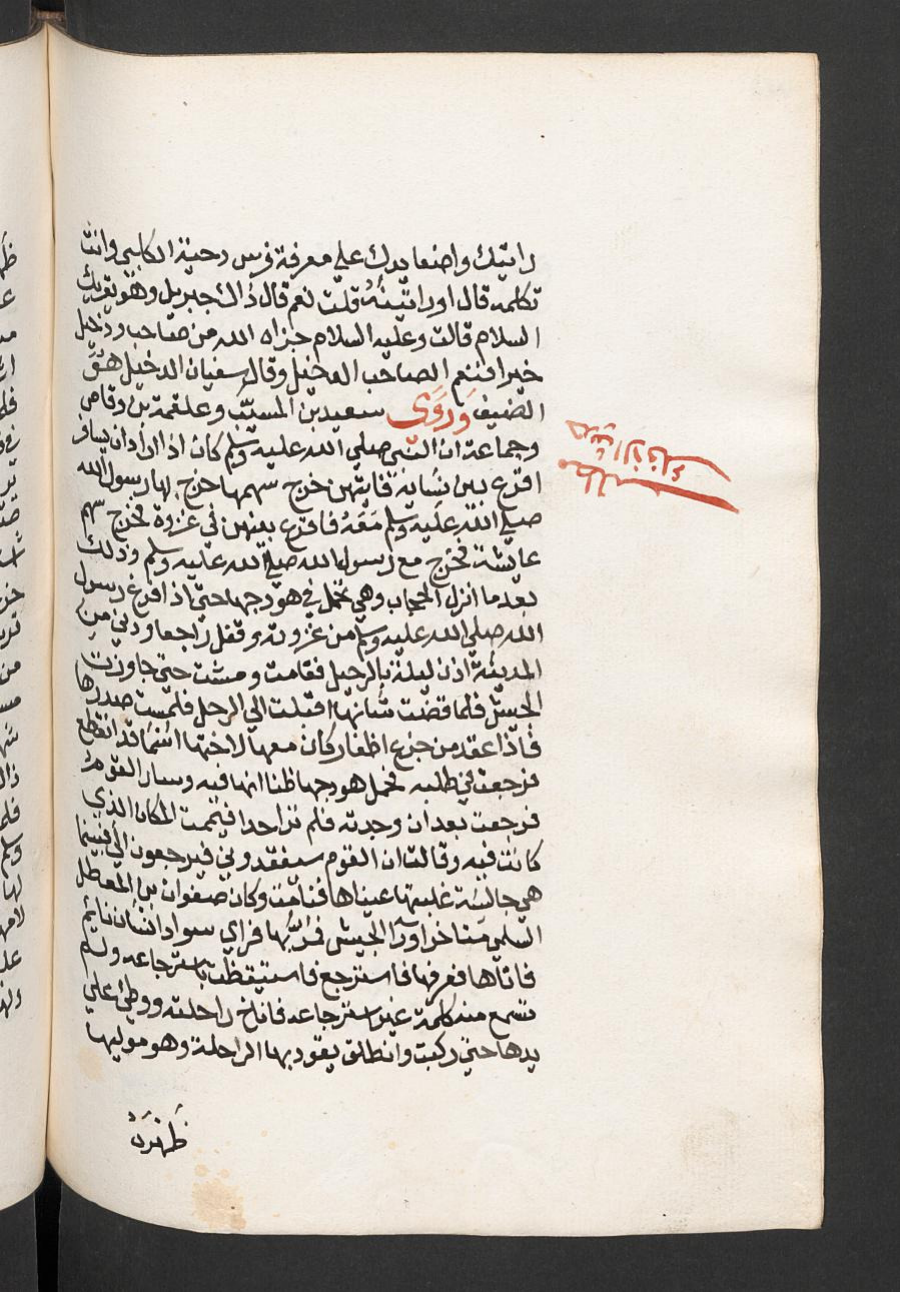 رايتك واضعا يدك علي معرفة فرس دحية الكلبي وانت
تكلمه قال اورايتيه قلت نعم قال ذاك جبريل وهو يقريك
السلام قالت وعليه السلام جزاه الله من صاحب ودخيل
خيرا فنعم الصاحب الدخيل وقال سفيان الدخيل هو
الضيف وروي سعيد بن المسيب وعلقمة بن وقاص
وجماعة ان النبي صلي الله عليه وسلم كان اذا اراد ان يسافر
اقرع بين نسايه فايتهن خرج سهمها خرج بها رسول الله
صلي الله عليه وسلم معه فاقرع بينهن في غزوة فخرج سهم
عايشة فخرج مع رسول الله صلي الله عليه وسلم وذلك
بعد ما انزل الحجاب وهي تحمل في هودجها حتي اذا افرغ رسول
الله صلي الله عليه وسلم من غزوته وقفل راجعا ودني من
المدينة اذن ليلة بالرحيل فقامت ومشت حتي جاوزت
الجيش فلما قضت شانها اقبلت الي الرحل فلمست صدرها
فاذا عقد من جزع اظفار كان معها لاختها اسما قد انقطع
فرجعت في طلبه فحمل هودجها ظنا انها فيه وسار القوم
فرجعت بعد ان وجدته فلم تر احدا فيممت المكان الذي
كانت فيه وقالت ان القوم سيفقدوني فيرجعون الي فبينما
هي جالسة غلبتها عيناها فنامت وكان صفوان بن المعطل
السلمي متاخرا ورآ الجيش فمر بها فراي سواد انسان نايم
فاتاها فعرفها فاسترجع فاستيقظت باسترجاعه ولم
تسمع منه كلمة غير استرجاعه فاناخ راحلته ووطئ علي
يدها حتي ركبت وانطلق يقود بها الراحلة وهو موليها
ظهره